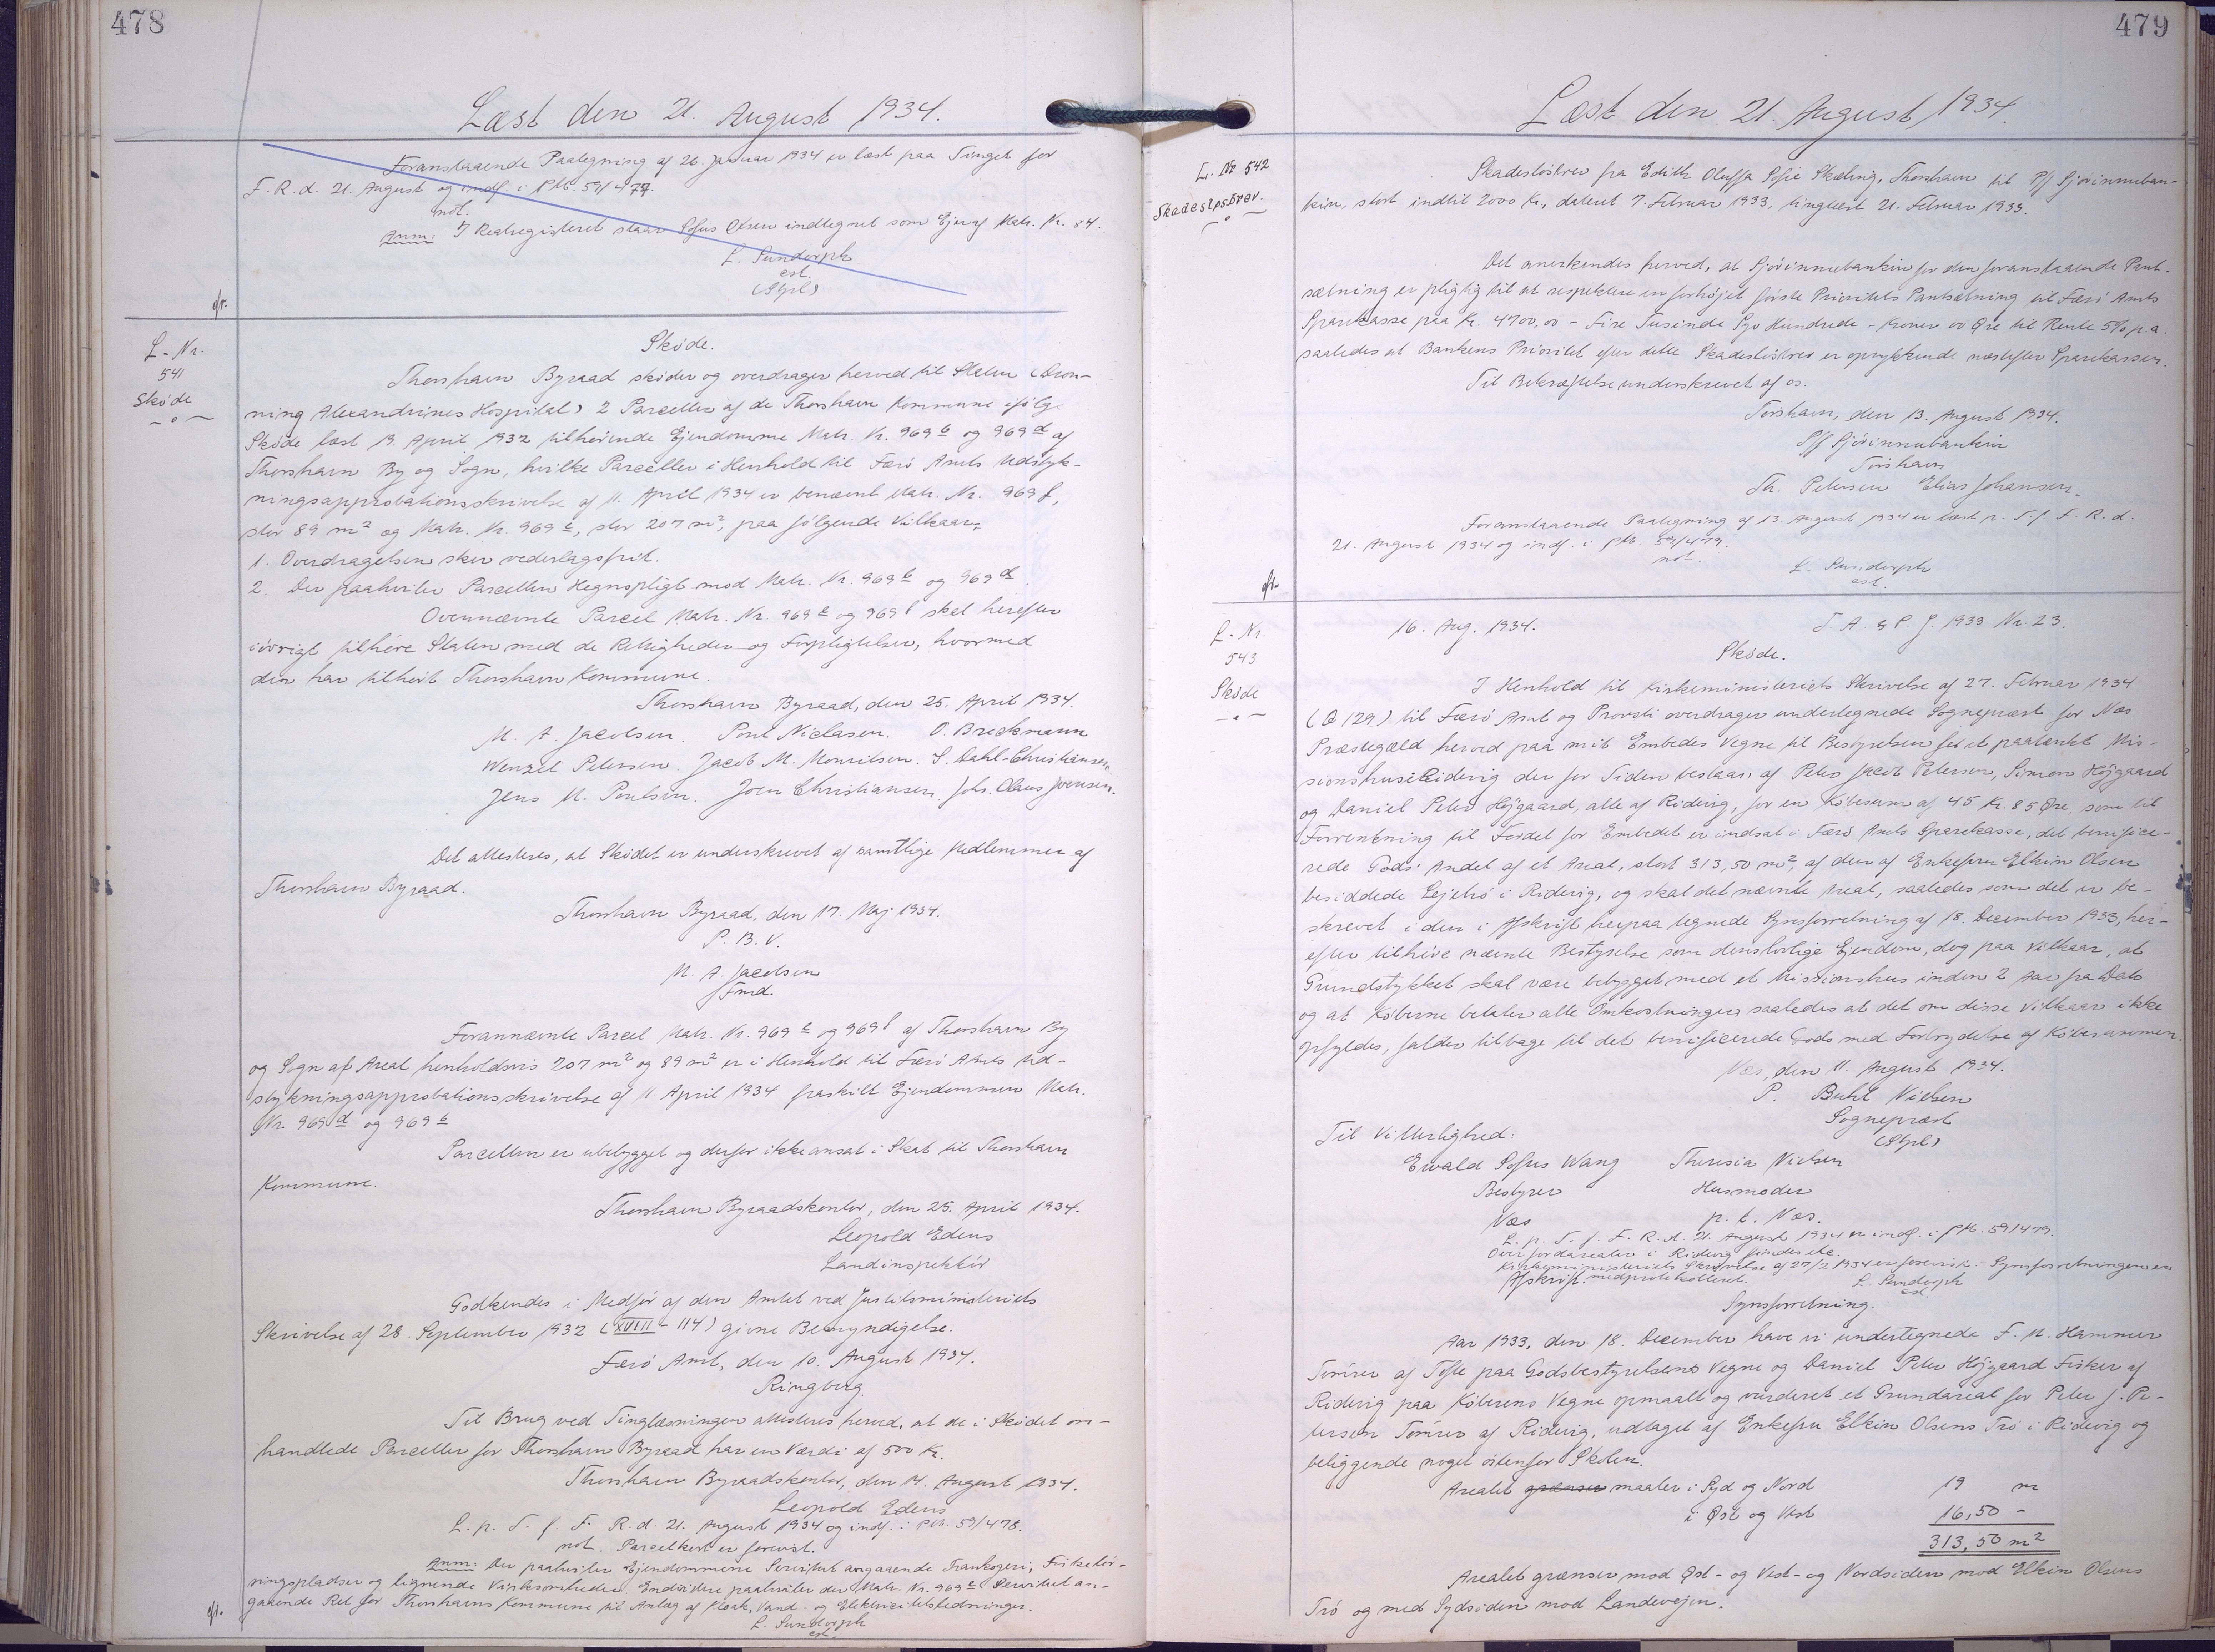 478
Læst den 21. August 1934.
Foranstaaende Paategning af 26. Januar 1934 er læst paa Tinget for
F. R. d. 21. August og indf. i PM. 59/477.
not.
Anm: I Realregisteret staar Sofus Olsen indtegnet som Ejer af Matr. Nr. 84.
L. Sundorph
cst.
(Stpl)
L-Nr.
541
Skøde
Skøde.
Thorshavn Byraad skøder og overdrager herved til Staten (Dron-
ning Alexandrines Hospital) 2 Parceller af de Thorshavn Kommune ifølge
Skøde læst 19. April 1932 tilhørende Ejendomme Matr. Nr. 969 b og 969 d af
Thorshavn By og Sogn, hvilke Parceller i Henhold til Færø Amts Udstyk-
ningsapprobationsskrivelse af 11. April 1934 er benævnt Matr. Nr. 969 f,
stor 89 m² og Matr. Nr. 969 e, stor 207 m², paa følgende Vilkaar:
1. Overdragelsen sker vederlagsfrit.
2. Der paahviler Parcellen Hegnspligt mod Matr. Nr. 969 b og 969 d.
Ovennævnte Parcel Matr. Nr. 969 e og 969 f skal herefter
iøvrigt tilhøre Staten med de Rettigheder og Forpligtelser, hvormed
den har tilhørt Thorshavn Kommune.
Thorshavn Byraad, den 25. April 1934.
M. A. Jacobsen. Poul Niclasen. O. Breckmann
Wenzel Petersen. Jacob M. Mouritsen. S. Dahl-Christiansen.
Jens M. Poulsen. Joen Christiansen. Johs. Olaus Joensen.
Det attesteres, at Skødet er underskrevet af samtlige Medlemmer af
Thorshavn Byraad.
Thorshavn Byraad, den 17. Maj 1934.
P. B. V.
M. A. Jacobsen
Fmd.
Forannævnte Parcel Matr. Nr. 969 e og 969 f af Thorshavn By
og Sogn af Areal henholdsvis 207 m² og 89 m² er i Henhold til Færø Amts Ud-
stykningsapprobationsskrivelse af 11. April 1934 fraskilt Ejendommen Matr.
Nr. 969 d og 969 b
Parcellen er ubebygget og derfor ikke ansat i Skat til Thorshavn
Kommune.
Thorshavn Byraadskontor, den 25. April 1934.
Leopold Edens
Landinspektør
Godkendes i Medfør af den Amtet ved Justitsministeriets
Skrivelse af 28. September 1932 (XVIII - 114) givne Bemyndigelse.
Færø Amt, den 10. August 1934.
Ringberg.
Til Brug ved Tinglæsningen attesteres herved, at de i Skødet om-
handlede Parceller for Thorshavn Byraad har en Værdi af 500 Kr.
Thorshavn Byraadskontor, den 14. August 1934.
Leopold Edens
L. p. T. f. F. R. d. 21. August 1934 og indf. i PM. 59/478.
not. Parcelkort er forevist.
Anm: Der paahviler Ejendommene Servitut angaaende Trankogeri, Fisketør-
ringspladser og lignende Virksomheder. Endvidere paahviler der Matr. Nr. 969 e Servitut an-
gaaende Ret for Thorshavns Kommune til Anlæg af Kloak, Vand- og Elektricitetsledninger.
L. Sundorph
cst.
479
Læst den 21. August, 1934.
L. Nr 542
Skadesløsbrev.
Skadesløsbrev fra Edith Oluffa Sofie Skæling, Thorshavn til P/f Sjóvinnuban-
kin, stort indtil 2000 Kr, dateret 7. Februar 1933, tinglæst 21. Februar 1933.
Det anerkendes herved, at Sjóvinnubankin for den foranstaaende Pant-
sætning er pligtig til at respektere en forhøjet første Prioritets Pantsætning til Færø Amts
Sparekasse paa Kr. 4700,00 - Fire Tusinde Syv Hundrede - Kroner 00 Øre til Rente 5% p.a.
saaledes at Bankens Prioritet efter dette Skadesløsbrev er oprykkende næstefter Sparekassen.
Til Bekræftelse underskrevet af os.
Torshavn, den 13. August 1934.
P/f Sjóvinnubankin
Torshavn
Th. Petersen Elias Johansen.
Foranstaaende Paategning af 13. August 1934 er læst p. T. f. F. R. d.
21. August 1934 og indf. i PM. 59/479.
not.
L. Sundorph
cst.
L-Nr.
543
Skøde
16. Aug. 1934.
T. A. & P. J. 1933 Nr. 23.
Skøde.
I Henhold til Kirkeministeriets Skrivelse af 27. Februar 1934
(Q 129) til Færø Amt og Provsti overdrager undertegnede Sognepræst for Næs
Præstegæld herved paa mit Embedes Vegne til Bestyrelsen for et paatænkt Mis-
sionshus i Ridevig der for Tiden bestaar af Peter Jacob Petersen, Simon Højgaard
og Daniel Peter Højgaard, alle af Ridevig, for en Købesum af 45 Kr. 85 Øre som til
Forrentning til Fordel for Embedet er indsat i Færø Amts Sparekasse, det benifice-
rede Gods' Andel af et Areal, stort 313,50 m², af den af Enkefru Elkin Olsen
besiddede Lejetrø i Ridevig, og skal det nævnte Areal, saaledes som det er be-
skrevet i den i Afskrift herpaa tegnede Synsforretning af 18. December 1933, her-
efter tilhøre nævnte Bestyrelse som dens lovlige Ejendom, dog paa Vilkaar, at
Grundstykket skal være bebygget med et Missionshus inden 2 Aar fra Dato
og at Køberne betaler alle Omkostninger, saaledes at det om disse Vilkaar ikke
opfyldes, falder tilbage til det benificerede Gods med Fortrydelse af Købesummen.
Næs, den 11. August 1934.
P. Buhl Nielsen
Sognepræst
(Stpl)
Til Vitterlighed:
Ewald Sofus Wang Theresia Nielsen
Bestyrer Husmoder
Næs p. t. Næs.
L. p. T. f. F. R. d. 21. August 1934 er indf. i PM. 59/479.
Over jordarealer i Ridevig findes
Kirkeministeriets Skrivelse af 27/2 1934 er forevist. - Synsforretningen er
Afskrift medprotokolleret. L. Sundorph
cst.
Synsforretning.
Aar 1933, den 18. December have vi undertegnede F. M. Hammer
Tømrer af Tofte paa Godsbestyrelsens Vegne og Daniel Peter Højgaard Fisker af
Ridevig paa Køberens Vegne opmaalt og vurderet et Grundareal for Peter J. Pe-
tersen Tømrer af Ridevig, udtaget af Enkefru Elkin Olsens Trø i Ridevig og
beliggende noget østenfor Skolen.
Arealet grænser maaler i Syd og Nord 19 m
i Øst og Vest 16,50 -
313,50 m²
Arealet grænser mod Øst- og Vest- og Nordsiden mod Elkin Olsens
Trø og med Sydsiden mod Landevejen.